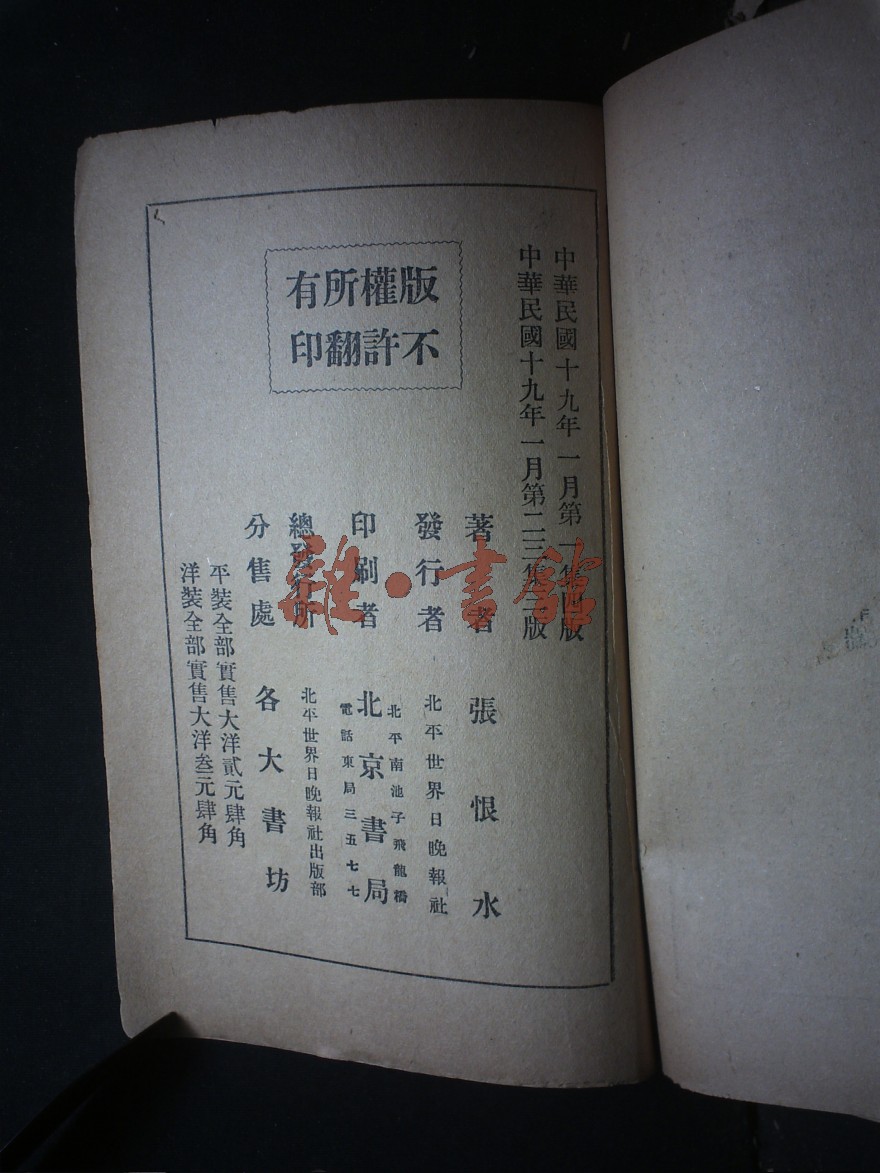 中華民國十九年一月第一集四版
中華民國十九年一月第二三集三版
版權所有
不許翻印
著者 張恨水
發行者 北平世界日晚報社
印刷者 北京書局
北平南池子飛龍橋
電話東局三五七七
總發行所 北平世界日晚報社出版部
分售處 各大書坊
平裝全部實售大洋貳元肆角
洋裝全部實售大洋叁元肆角
雜·書館